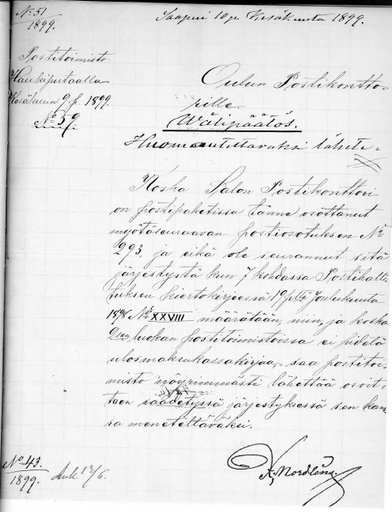 No 51
1899.
Saapui 10 p. Kesäkuuta 1899.
Postitoimisto
Haukiputaalla
Kesäkuun 9 p. 1899
No 59.
Oulun Postikontto-
rille.
Wälipäätös.
Huomautettavaksi lähete-
Koska Salon Postikonttori
on postipaketissa tänne osottanut
myötäseuraavan postiosotuksen No
293, ja eikä ole seurannut sitä
järjestystä kun 7 kohdassa Postihalli-
tuksen kiertokirjeessä 19 p:ltä Joulukuuta
1898 No XXVIII määrätään, niin, ja koska
luokan postitoimistoissa ei pidetä
ulosmaksukassakirjaa, saa postitoi-
misto nöyrimmästi lähettää osoit-
teen säädetyssä järjestyksessä sen kans-
sa meneteltäväksi.
K. Nordlöng
No 43.
1899.
13/6.